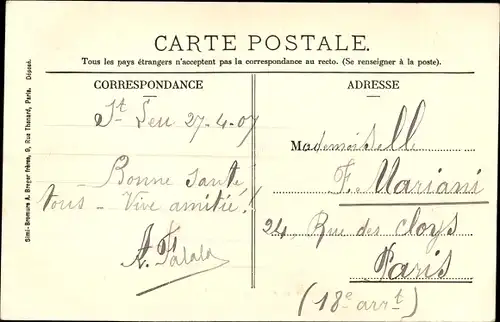 CARTE POSTALE.
Tous les pays étrangers n'acceptent pas la correspondance au recto. (Se renseigner à la poste).
CORRESPONDANCE
St Leu 27-4-07
Bonne santé
tous - Vive amitié!
A.
ADRESSE
Mademoiselle
F. Mariani
24, Rue des Cloys
Paris
(18e arrt)
Simili-Bromure A. Breger frères, 9, Rue Thénard, Paris. Déposé.